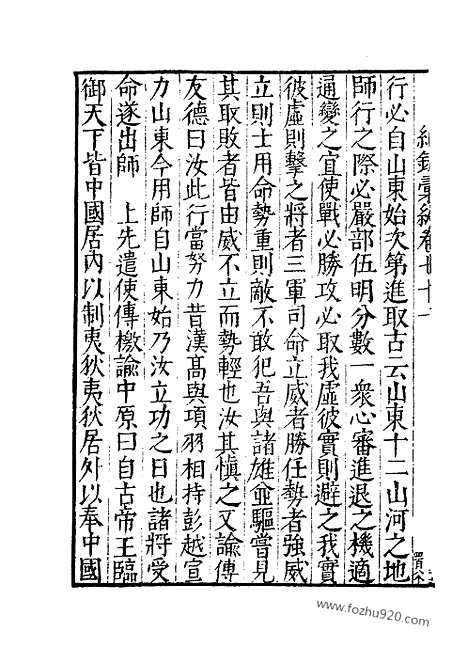 紀錄彙編卷
行必自山東始次第進取古云山東十二山河之地
師行之際必嚴部伍明分數一衆心審進退之機適
通變之宜使戰必勝攻必取我虛彼實則避之我實
彼虛則擊之將者三軍司命立威者勝任勢者強威
立則士用命勢重則敵不敢犯吾與諸雄並驅嘗見
其取敗者皆由威不立而勢輕也汝其慎之又諭傳
友德曰汝此行當努力昔漢髙與項羽相持彭越宣
力山東今用師自山東始乃汝立功之日也諸將受
命遂出師　上先遣使傳檄諭中原曰自古帝王臨
御天下皆中國居内以制夷狄夷狄居外以奉中國
www.fozhu920.com